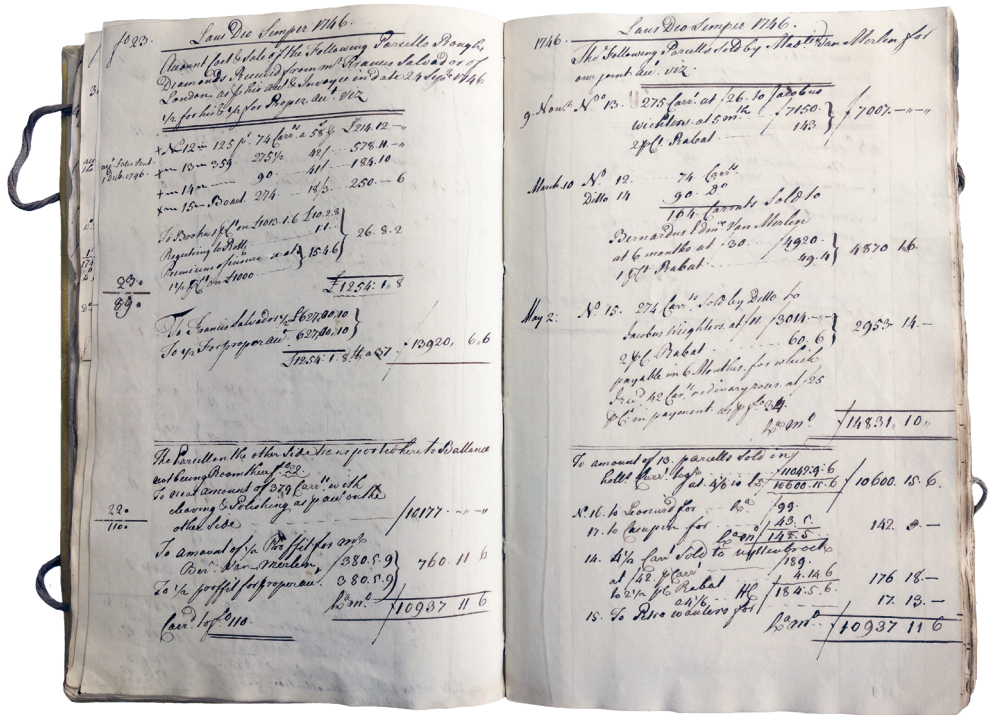 fo 23. Laus Deo Semper 1746.
Amount Cost & Sale of the Following Parcells Rough
Diamonds Received from Mr Francis Salvador of
London as p his acct & Invoyce in date 24 Septr 1746
1/2 for his & 1/2 for Proper acct. viz
No 12 - 125 ps. 74 Carrts a 58/ £214.12 -"
13 - 359 275 1/2 42/ 578.11 -"
14 - 90 - 41/ 184.10
15 - Boart 274 18/3 250 - 6
To Brokus 1 p Ct on £1013.1.6 £10.2.8
11.
Premium of 15.4.6 26.8.2
1 1/2 p Ct on £1000
£1254:1.8
23.
89.
To Francis Salvador 1/2 £627.00.10
To 1/2 For proper acct. 627.00.10
£1254:1.8 a 37 13920, 6,6
The Parcell on the other Side transported here to Ballance
not being Room there fo 22
To neat amount of 379 Carrts with
cleaving & Polishing as p acct on the
other Side f10177 -"-"
22.
110.
To amount of 1/2 Proffit for Mr
Ber. Van Merlen, f380.5.9
To 1/2 proffit for proper acct. 380.5.9 760.11 6
f10937 11 6
Carrd. to fo 110.
1746. Laus Deo Semper 1746.
The Following Parcells Sold by Van Merlen for
our joint acct. viz.
9 Novr No 13. 275 Carrt. at f26. to Jacobus
Wichters. at 5 mth f7150. f7007.-"-"
2 p Ct. Rabat. 143
March 10 No. 12. 74 Carrts
Ditto 14 90. Do
164. Carrats Sold to
Bernardus Van Merlen
at 6 months at f30. f4920. 4870 16
1 p Ct. Rabat. 49.4
May 2: No 15. 274 Carrts. Sold by Ditto to
Jacobus Wighters. at f11 f3014.- 2953 14.-
2 p Ct. Rabat 60.6
payable in 6 Months. for which
Recd. 42 Carrts. ordinary roses. at f25
p Ct. in payment as p fo 34.
f14831. 10"
To amount of 13. parcells Sold in
f11042.9.6
f10600.15.6 f10600. 15. 6.
No. 16. to Leonard for f99.
17. to for 43.5. 142. 5.-
f142.5.
14. 4 1/2 Carrt Sold to
at f42. p Carrt f189.
to 2 1/2 p Ct Rabat 4.14.6 176 18.-
f184.5.6.
15. To wouters for 17. 13.-
f10937 11 6